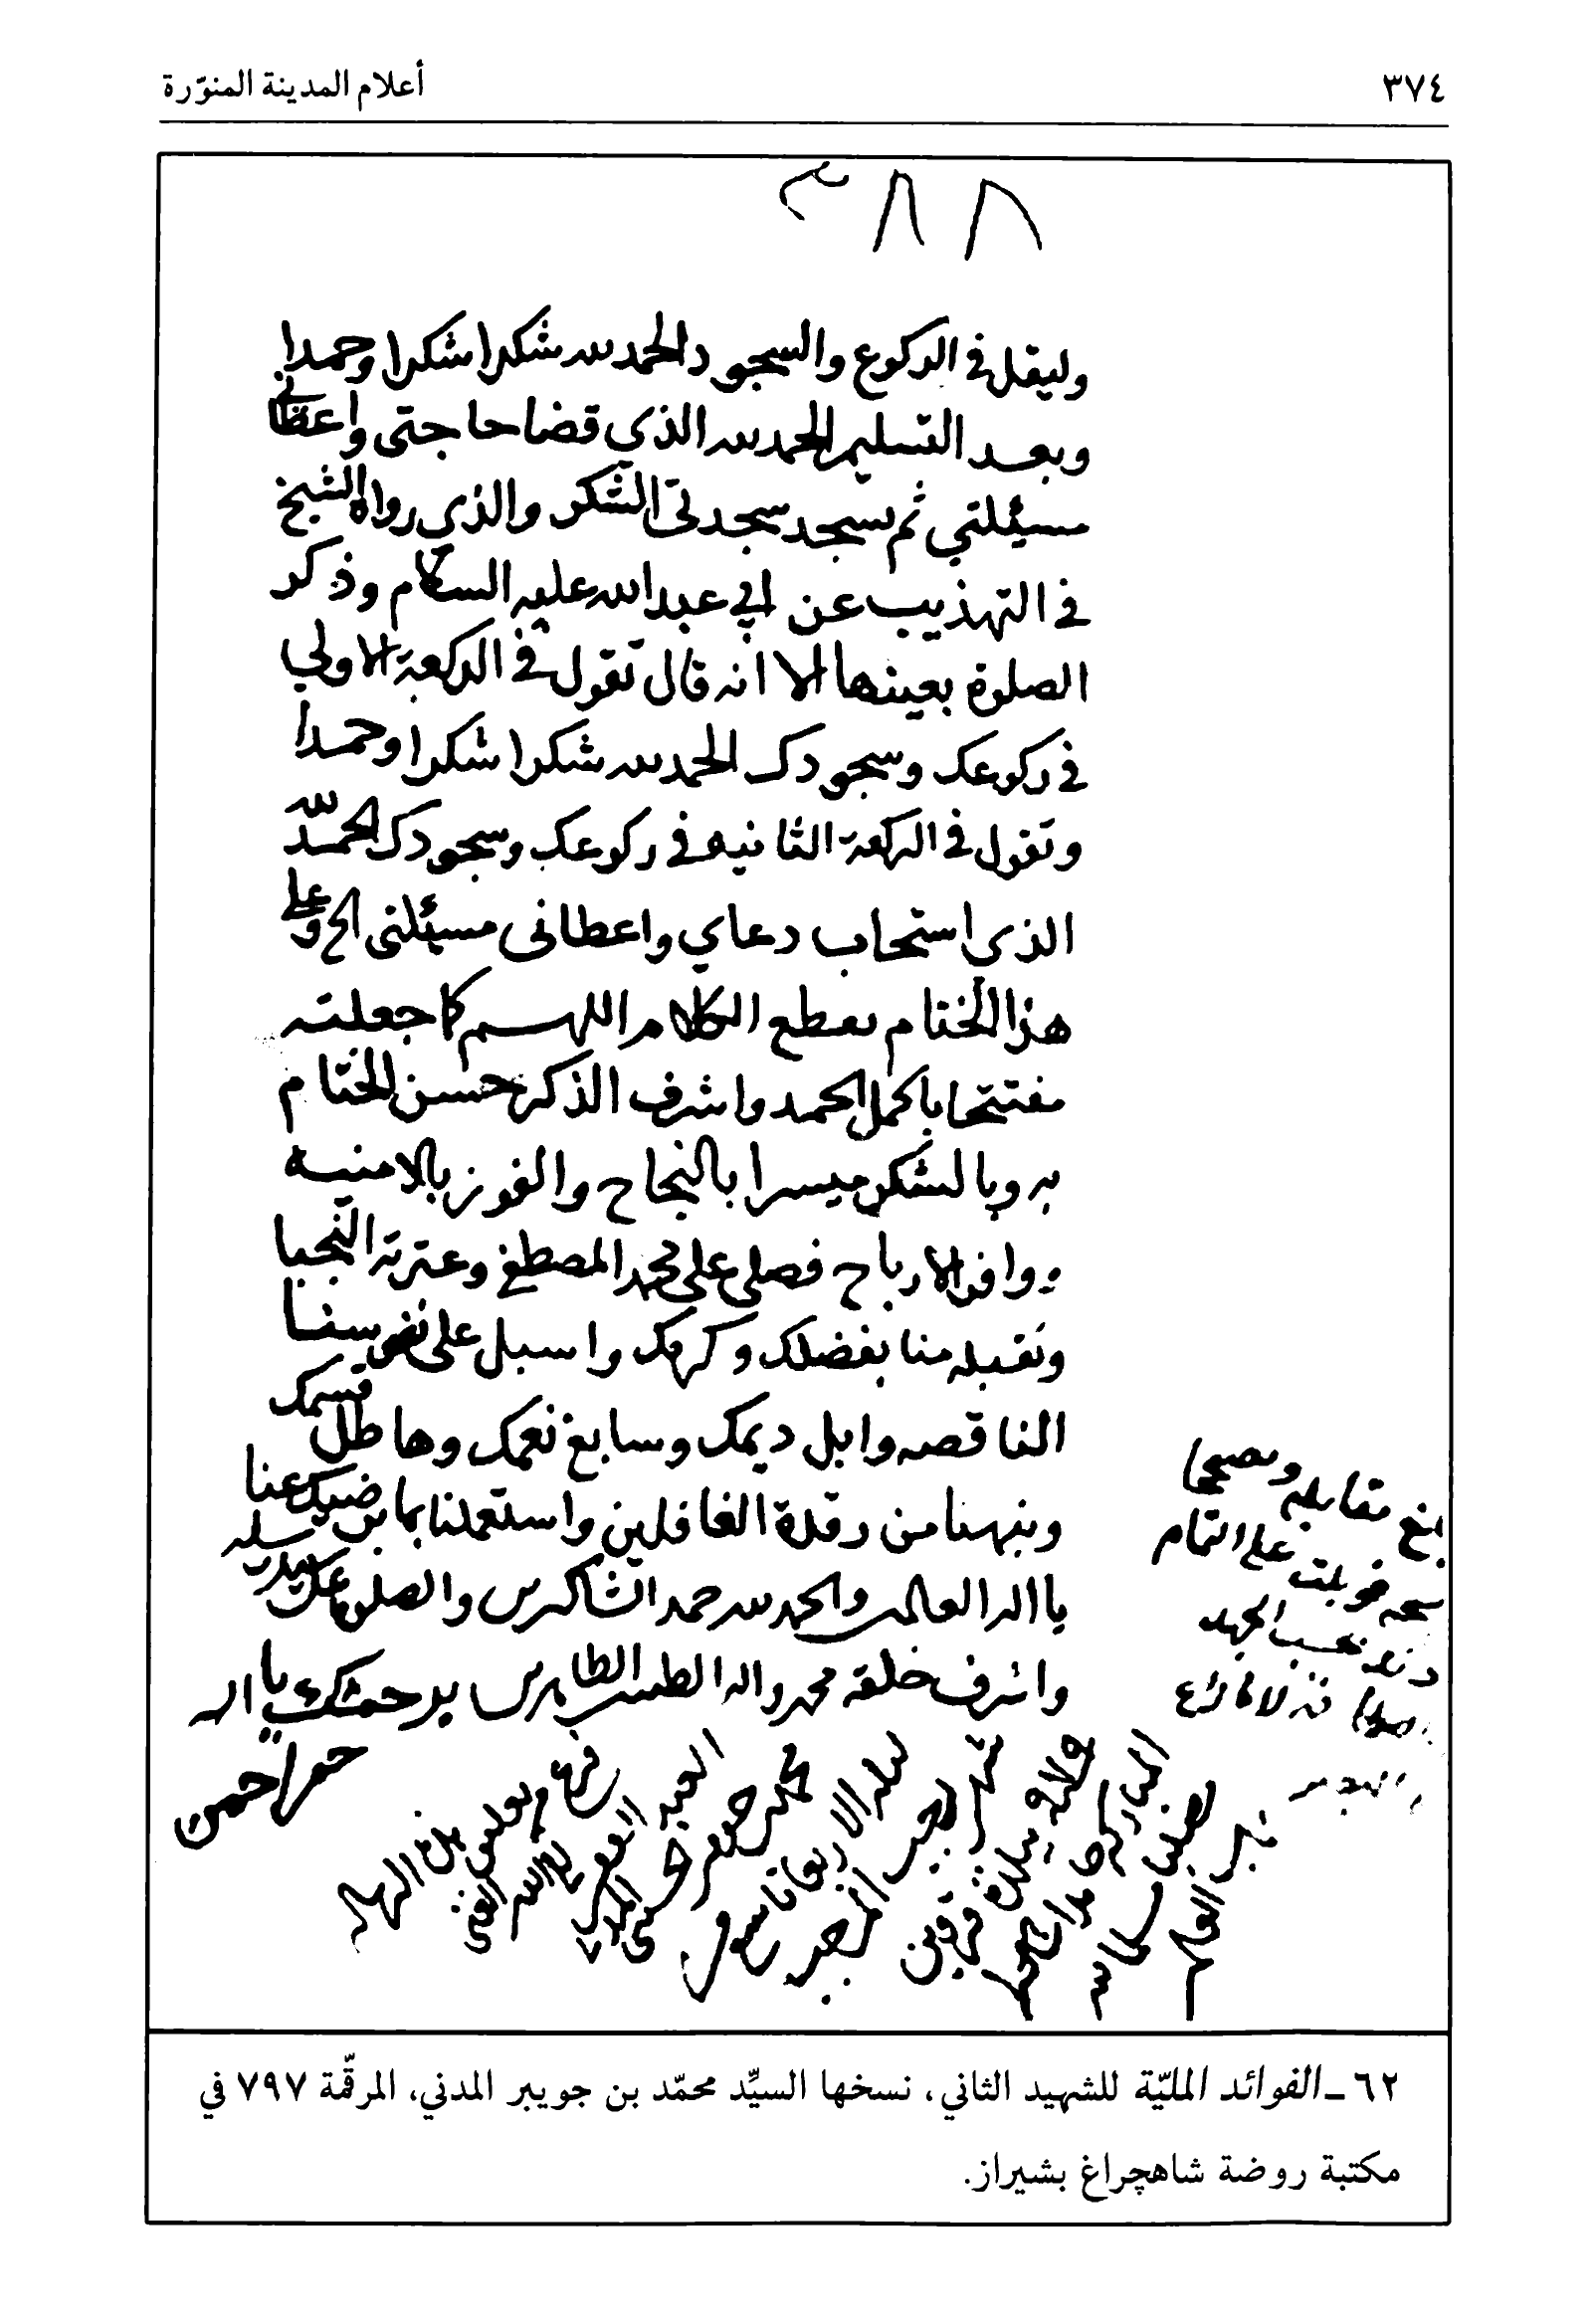 ٣٧٤
أعلام المدينة المنوّرة
٣٨٨
وليقل في الركوع والسجود الحمد لله شكرا شكرا وحمدا
وبعد التسليم الحمد لله الذي قضا حاجتى واعطانى
مسئلتي ثم يسجد سجدتى الشكر والذي رواه الشيخ
في التهذيب عن ابي عبد الله عليه السلام وذكر
الصلوة بعينها الا انه قال تقول في الركعة الاولي
في ركوعك وسجودك الحمد لله شكرا شكرا وحمدا
وتقول في الركعة الثانيه في ركوعك وسجودك الحمد لله
الذى استجاب دعاي واعطانى مسئلتى الخ وعلى
هذا الختام نقطع الكلام اللهم كما جعلته
مفتتحا باكمل الحمد واشرف الذكر حسن الختام
به وبالشكر ميسرا بالنجاح والفوز بالامنية
ووافر الارباح فصلى على محمد المصطفى وعترته النجبا
وتقبله منا بفضلك وكرمك واسبل على نفوسنا
الناقصه وابل ديمك وسابغ نعمك وهاطل قسمك
ونبهنا من رقدة الغافلين واستعملنا بما يرضيك عنا
يا اله العالمين والحمد لله حمد الشاكرين والصلوة على سيد رسله
واشرف خلقه محمد واله الطيبين الطاهرين برحمتك يا ارحم الراحمين
بلغ مقابله وتصحيحا
نسخه قوبلت على التمام
٦٢ ـ الفوائد المليّة للشهيد الثاني، نسخها السيِّد محمّد بن جويبر المدني، المرقّمة ٧٩٧ في
مكتبة روضة شاهچراغ بشيراز.